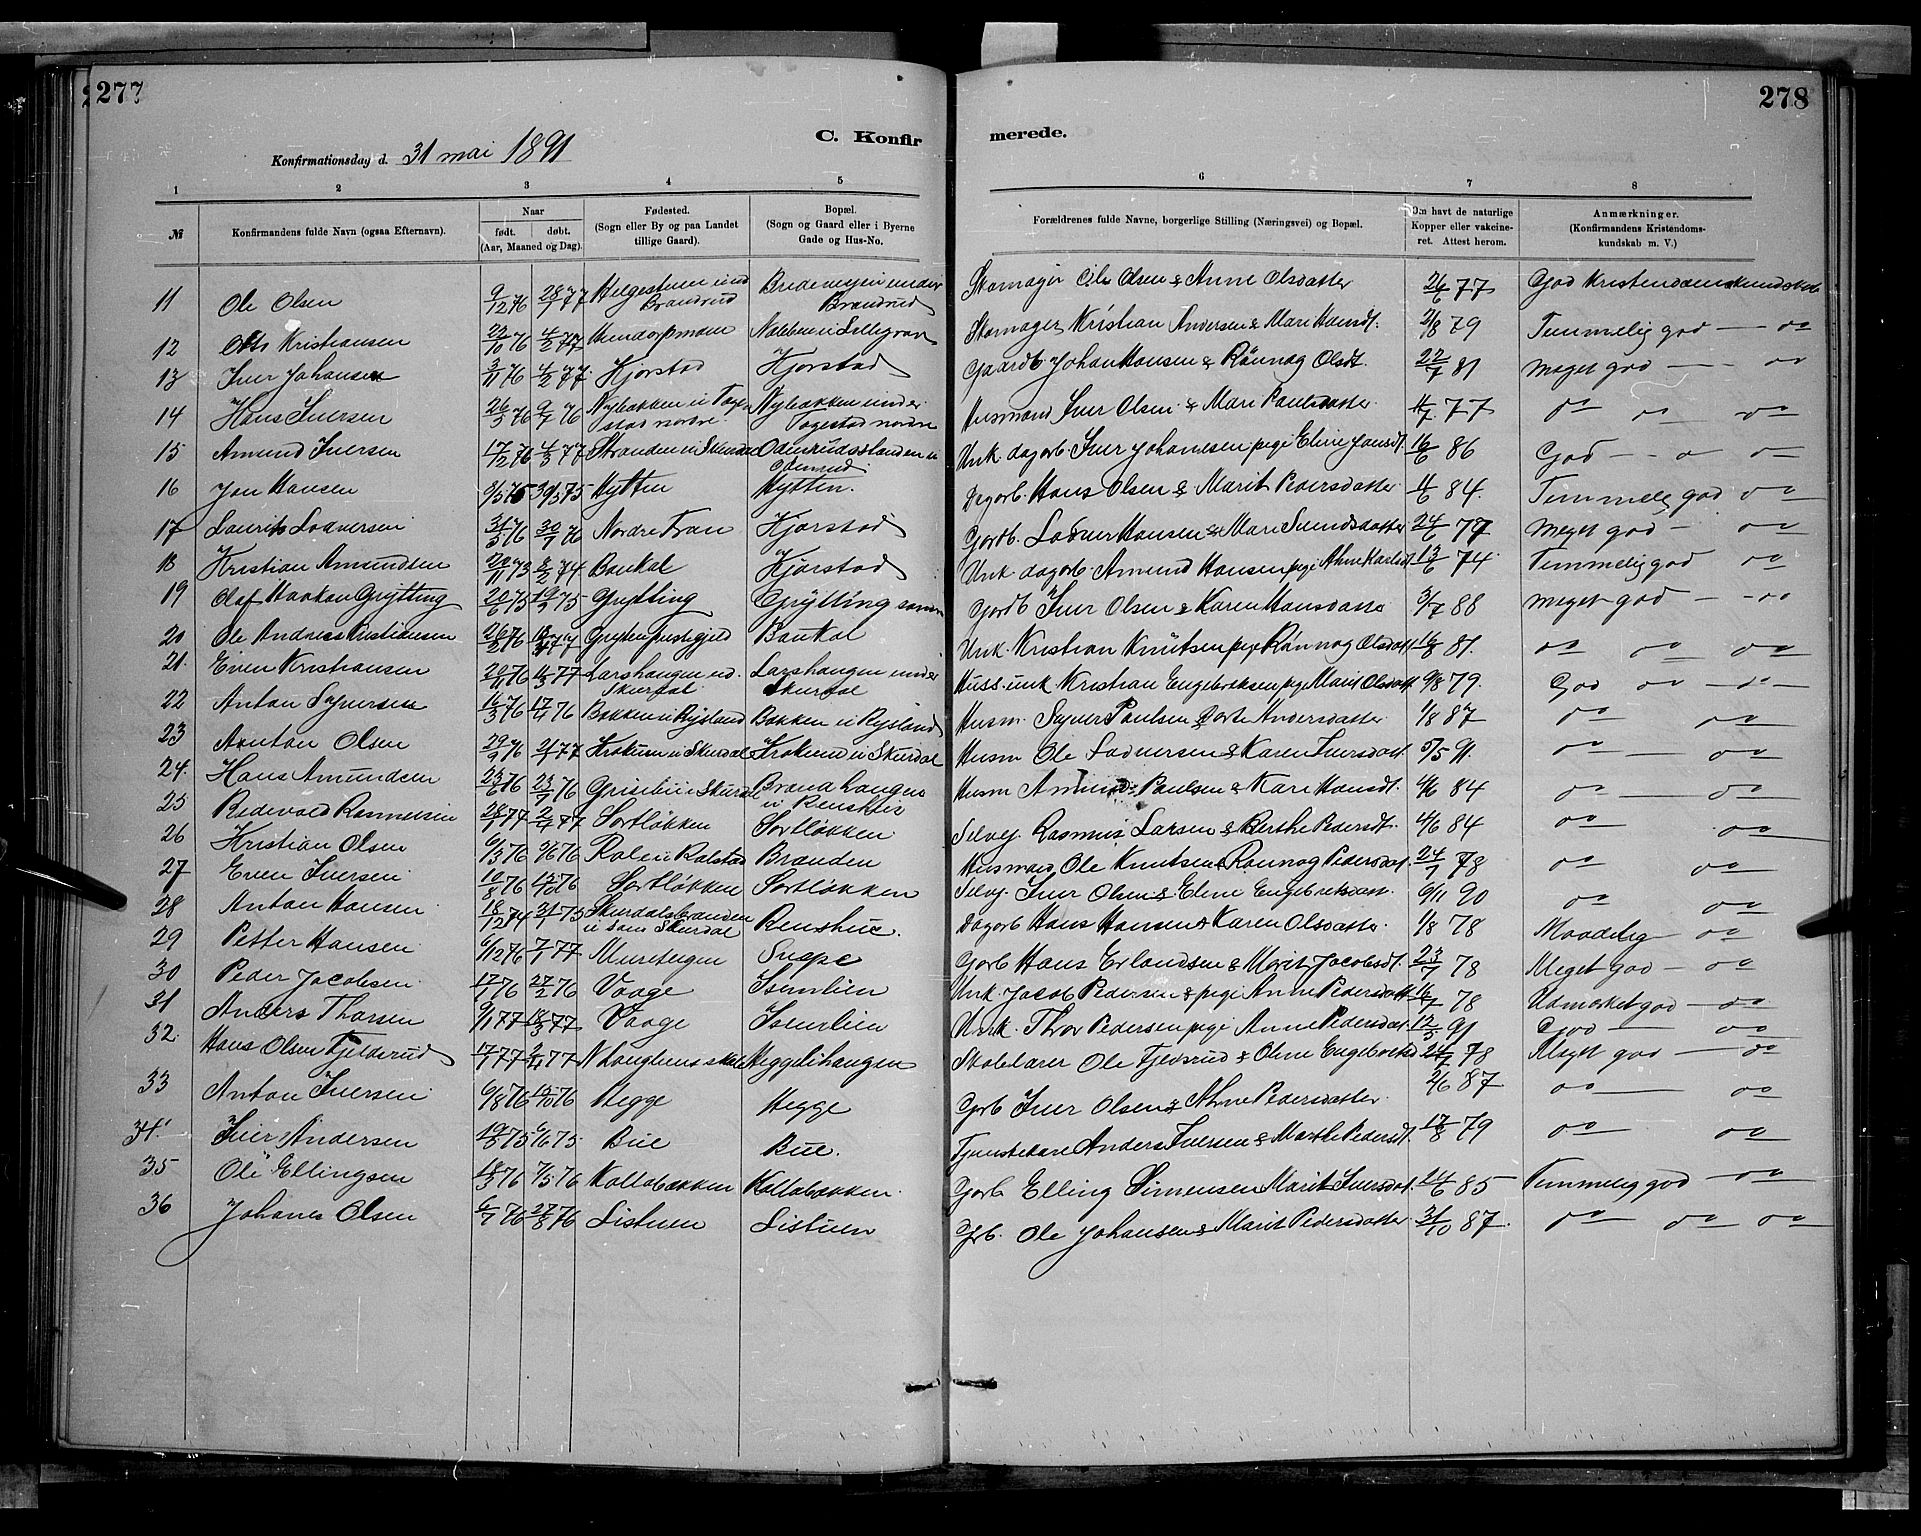 277
278
C. Konfirmerede.
Konfirmationsdag d. 31 mai 1891
1 2 3 4 5 6 7 8
№ Konfirmandens fulde Navn (ogsaa Efternavn). Naar født. døbt. (Aar, Maaned og Dag). Fødested. (Sogn eller By og paa Landet tillige Gaard). Bopæl. (Sogn og Gaard eller i Byerne Gade og Hus-No. Forældrenes fulde Navne, borgerlige Stilling (Næringsvei) og Bopæl. Om havt de naturlige Kopper eller vakcineret. Attest herom. Anmærkninger. (Konfirmandens Kristendomskundskab m. V.)
11 Ole Olsen 9/12 76 28/1 77 Helgestuen und Brandrud under Brandrud Skomager Ole Olsen & Anne Olsdatter 26/6 77 God Kristendomskundskab
12 Otto Kristiansen 22/10 76 4/2 77 Skomager Kristian Andersen & Mari Hansdt. 2/8 79 Temmelig god — do
13 Iver Johansen 3/11 76 4/2 77 Kjorstad Kjorstad Gaardb. Johan Hansen & Rønnog Olsdt. 22/7 81 meget god — do
14 Hans Iversen 26/3 76 9/7 76 Nybakken u Toge stad nordre Nybakken under Togestad nordre Husmand Iver Olsen & Mari Paulsdatter 4/7 77 do do do
15 Amund Iversen 17/12 76 4/3 77 Stranden u Skurdal Odenrudsslanden u Odenrud Unk. dagarb. Iver Johannesen pige Eline Jansdt. 16/6 86 God — do
16 Jon Hansen 3/5 75 30/5 75 Hytten Hytten. Dagarb. Hans Olsen & Marit Pedersdatter 11/6 84. Temmelig god do
17 Laurits Lodversen 31/5 76 30/7 76 Nordre Fron Kjorstad Gardb. Lodver Hansen & Mari Svendsdatter 24/6 77 meget god — do
18 Kristian Amundsen 29/11 73 2/2 74 Baukal Kjorstad Unk. dagarb Amund Hansen pige Ahne Karlsdt. 13/6 74. Temmelig god do
19 Olaf Haakon Grytting 20/6 75 19/9 75 Grytting Grytting Gardb Iver Olsen & Karen Hansdatter 3/7 88 meget god — do
20 Ole Andreas Kristiansen 26/12 76 Baukal Unk. Kristian Knutsen pige Rønnog Olsdatt 16/8 81. do do do
21. Even Kristiansen 76 77 Larshaugen ud. Skurdal Larshaugen under Skurdal Huss. unk Kristian Engebrektsen pige Marit Olsdatt 9/8 79. God do do
22 Anton Syversen 16/3 76 17/4 76 Bakken u Rysland Bakken u Rysland Husm. Syver Paulsen & Dorte Andersdatter 1/8 87 do do
23 Anton Olsen 29/9 76 2/1 77 Krokum u Skurdal Krokum u Skurdal Husm Ole Lodversen & Karen Iversdatt. 5/5 91. do do
24. Hans Amundsen 23/6 76 23/7 76 u Skurdal Brandhaugen Husm Amund Paulsen & Kari Hansdt. 4/6 84 do do
25 Redevald Rasmussen 28/1 77 2/4 77 Sortløkken Sortløkken Selvej Rasmus Larsen & Berthe Pedersdt. 4/6 84 do do
26 Kristian Olsen 6/3 76 2/6 76 Branden Husmand Ole Knutsen & Rønnog Pedersdat. 24/7 78 do do
27 Even Iversen 10/8 76 15/10 76 Sortløkken Sortløkken Selvej Iver Olsen & Eline Engebrektsdatt. 6/11 90 do do
28 Anton Hansen 18/12 74 31/1 75 Skurdalsbranden u søn Skurdal Renshue. Dagarb Hans Hansen & Karen Olsdatter. 1/8 78 Maadelig do
29 Petter Hansen 6/12 76 7/1 77 Murstugen Garb Hans Erlandsen & Marit Jacobsdt. 23/7 78 Meget god — do
30 Peder Jacobsen 17/1 76 27/2 76 Vaage Isumlien Unk. Jacob Pedersen & pige Anne Pedersdatt 78 Udmerket god — do
31 Anders Thorsen 9/1 77 18/3 77 Vaage Isumlien Unk. Thor Pedersen pige Anne Pedersdat. 12/5 91 God — do
32. Hans Olsen Fjeldsrud 17/1 77 2/4 77 Heggelihaugen Skolelærer Ole Fjeldsrud & Oline Engebretsd 24/7 78 Meget god — do
33 Anton Iversen 6/8 76 15/10 76 Hegge Hegge Garb Iver Olsen & Ahne Pedersdatter. 2/6 87 do do
34. Iver Andersen 19/3 75 6/6 75. Bue Bue. Tjenestekarl Anders Iversen & Marthe Pedersdt. 17/8 79 do do
35 Ole Ellingsen 18/3 76 7/5 76 Kollobakken Kollobakken. Garb Elling Simensen Marit Iversdat. 24/6 85 Temmelig god — do
36 Johanes Olsen 6/7 76 27/8 76 Listuen Listuen Grb. Ole Johansen & Marit Pedersdatter 31/10 87. do do do